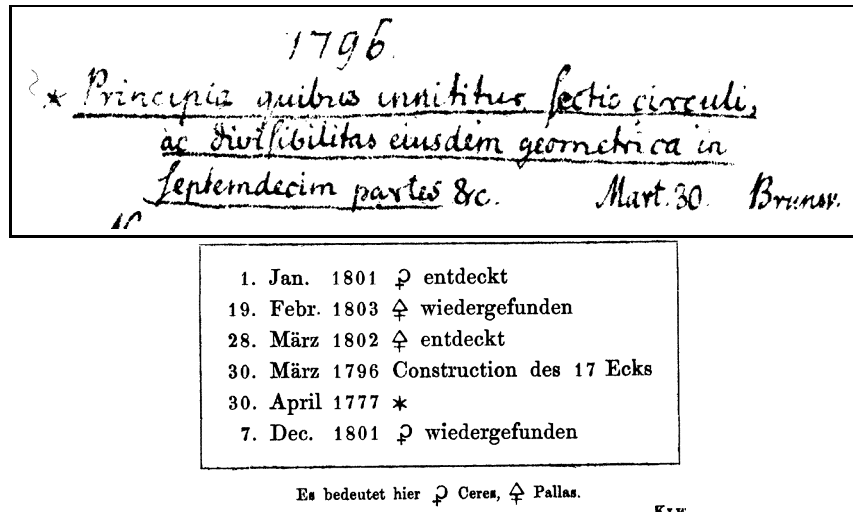 1796.
* Principia quibus innititur sectio circuli,
ac divisibilitas eiusdem geometrica in
septemdecim partes &c. Mart. 30. Brunsv.
1. Jan. 1801 ⚳ entdeckt
19. Febr. 1803 ⚴ wiedergefunden
28. März 1802 ⚴ entdeckt
30. März 1796 Construction des 17 Ecks
30. April 1777 *
7. Dec. 1801 ⚳ wiedergefunden
Es bedeutet hier ⚳ Ceres, ⚴ Pallas.